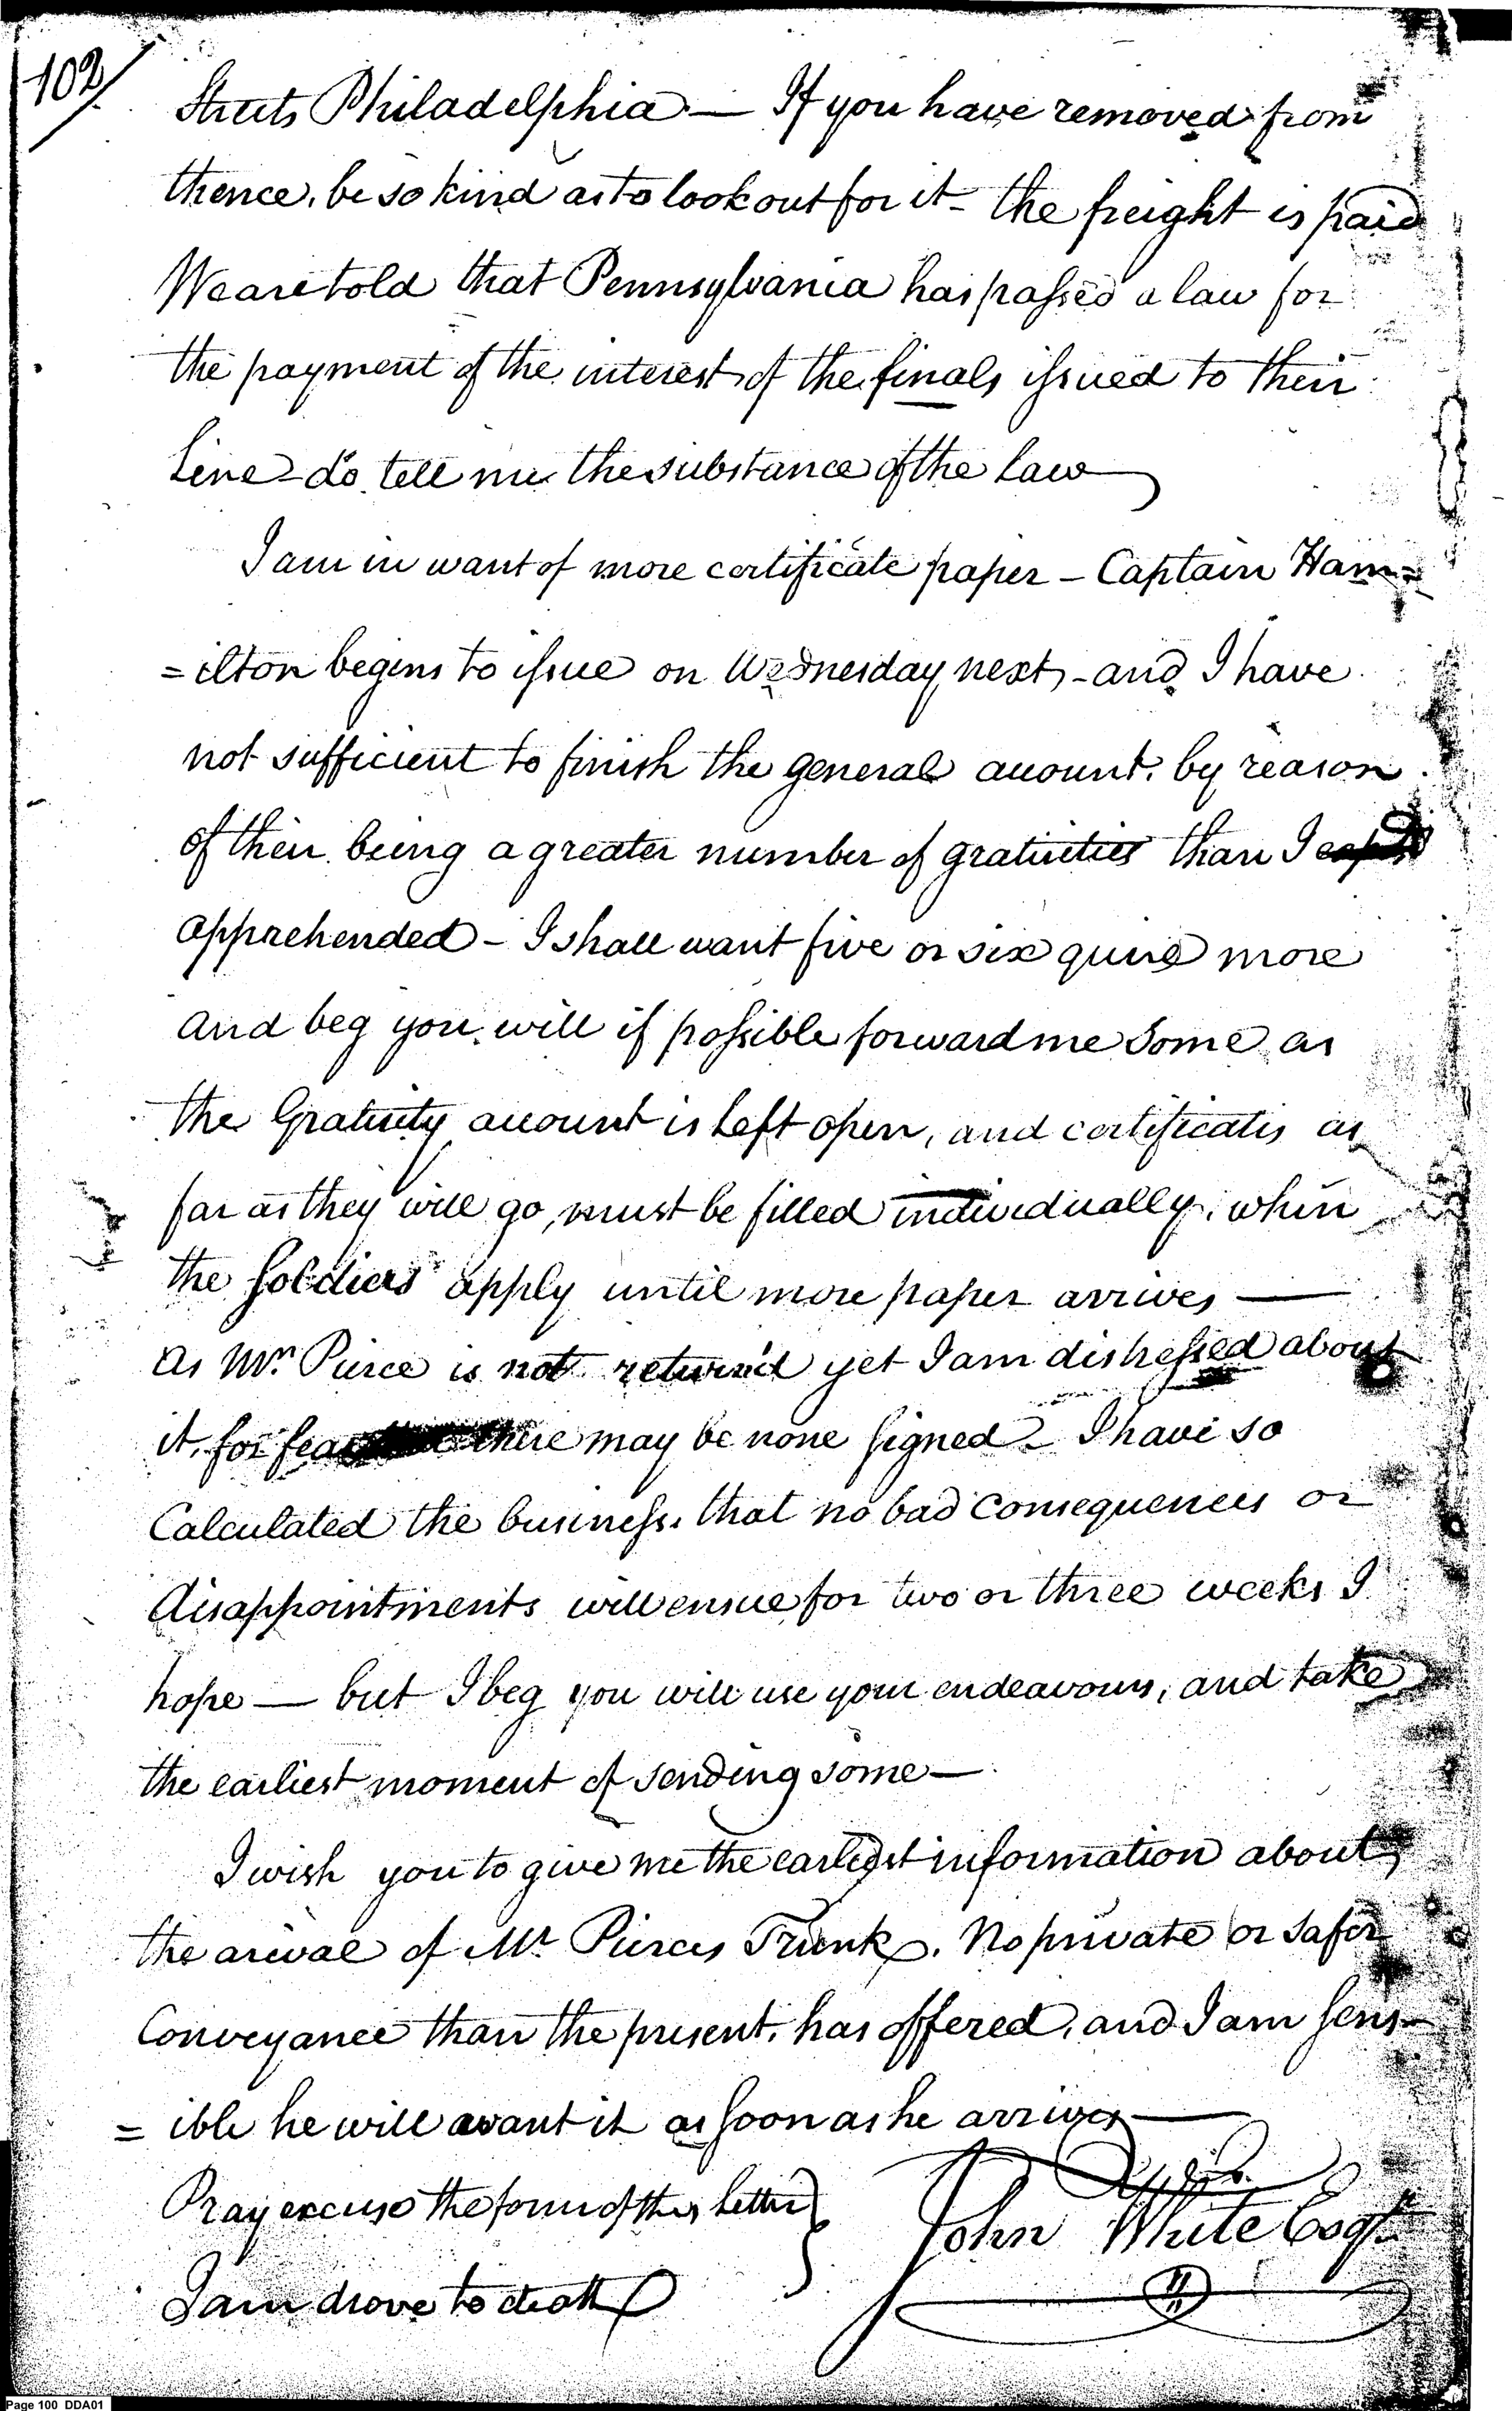 102/
Streets Philadelphia — If you have removed from
thence, be so kind as to look out for it - the freight is paid
We are told that Pennsylvania has passed a law for
the payment of the interest of the finals issued to their
Line - do tell me the substance of the Law
I am in want of more certificate paper - Captain Ham=
=ilton begins to issue on Wednesday next, - and I have
not sufficient to finish the general account, by reason
of their being a greater number of gratuities than I
apprehended - I shall want five or six quire more
and beg you will if possible forward me some as
the Gratuity account is Left open, and certificates as
far as they will go, must be filled individually, when
the soldiers apply until more paper arrives —
As Mr. Pierce is not return'd yet I am distressed about
it, for fear there may be none signed - I have so
Calculated the business, that no bad consequences or
disappointments will ensue for two or three weeks I
hope — but I beg you will use your endeavours, and take
the earliest moment of sending some —
I wish you to give me the earliest information about
the arival of Mr Pierces Trunk. No private or safer
Conveyance than the present, has offered, and I am sens-
=ible he will want it as soon as he arrives —
Pray excuse the form of this Letter
I am drove to death
John White Esqr.
Page 100 DDA01